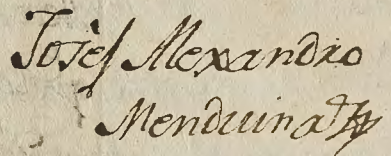 Josèf Alexandro
Menduina